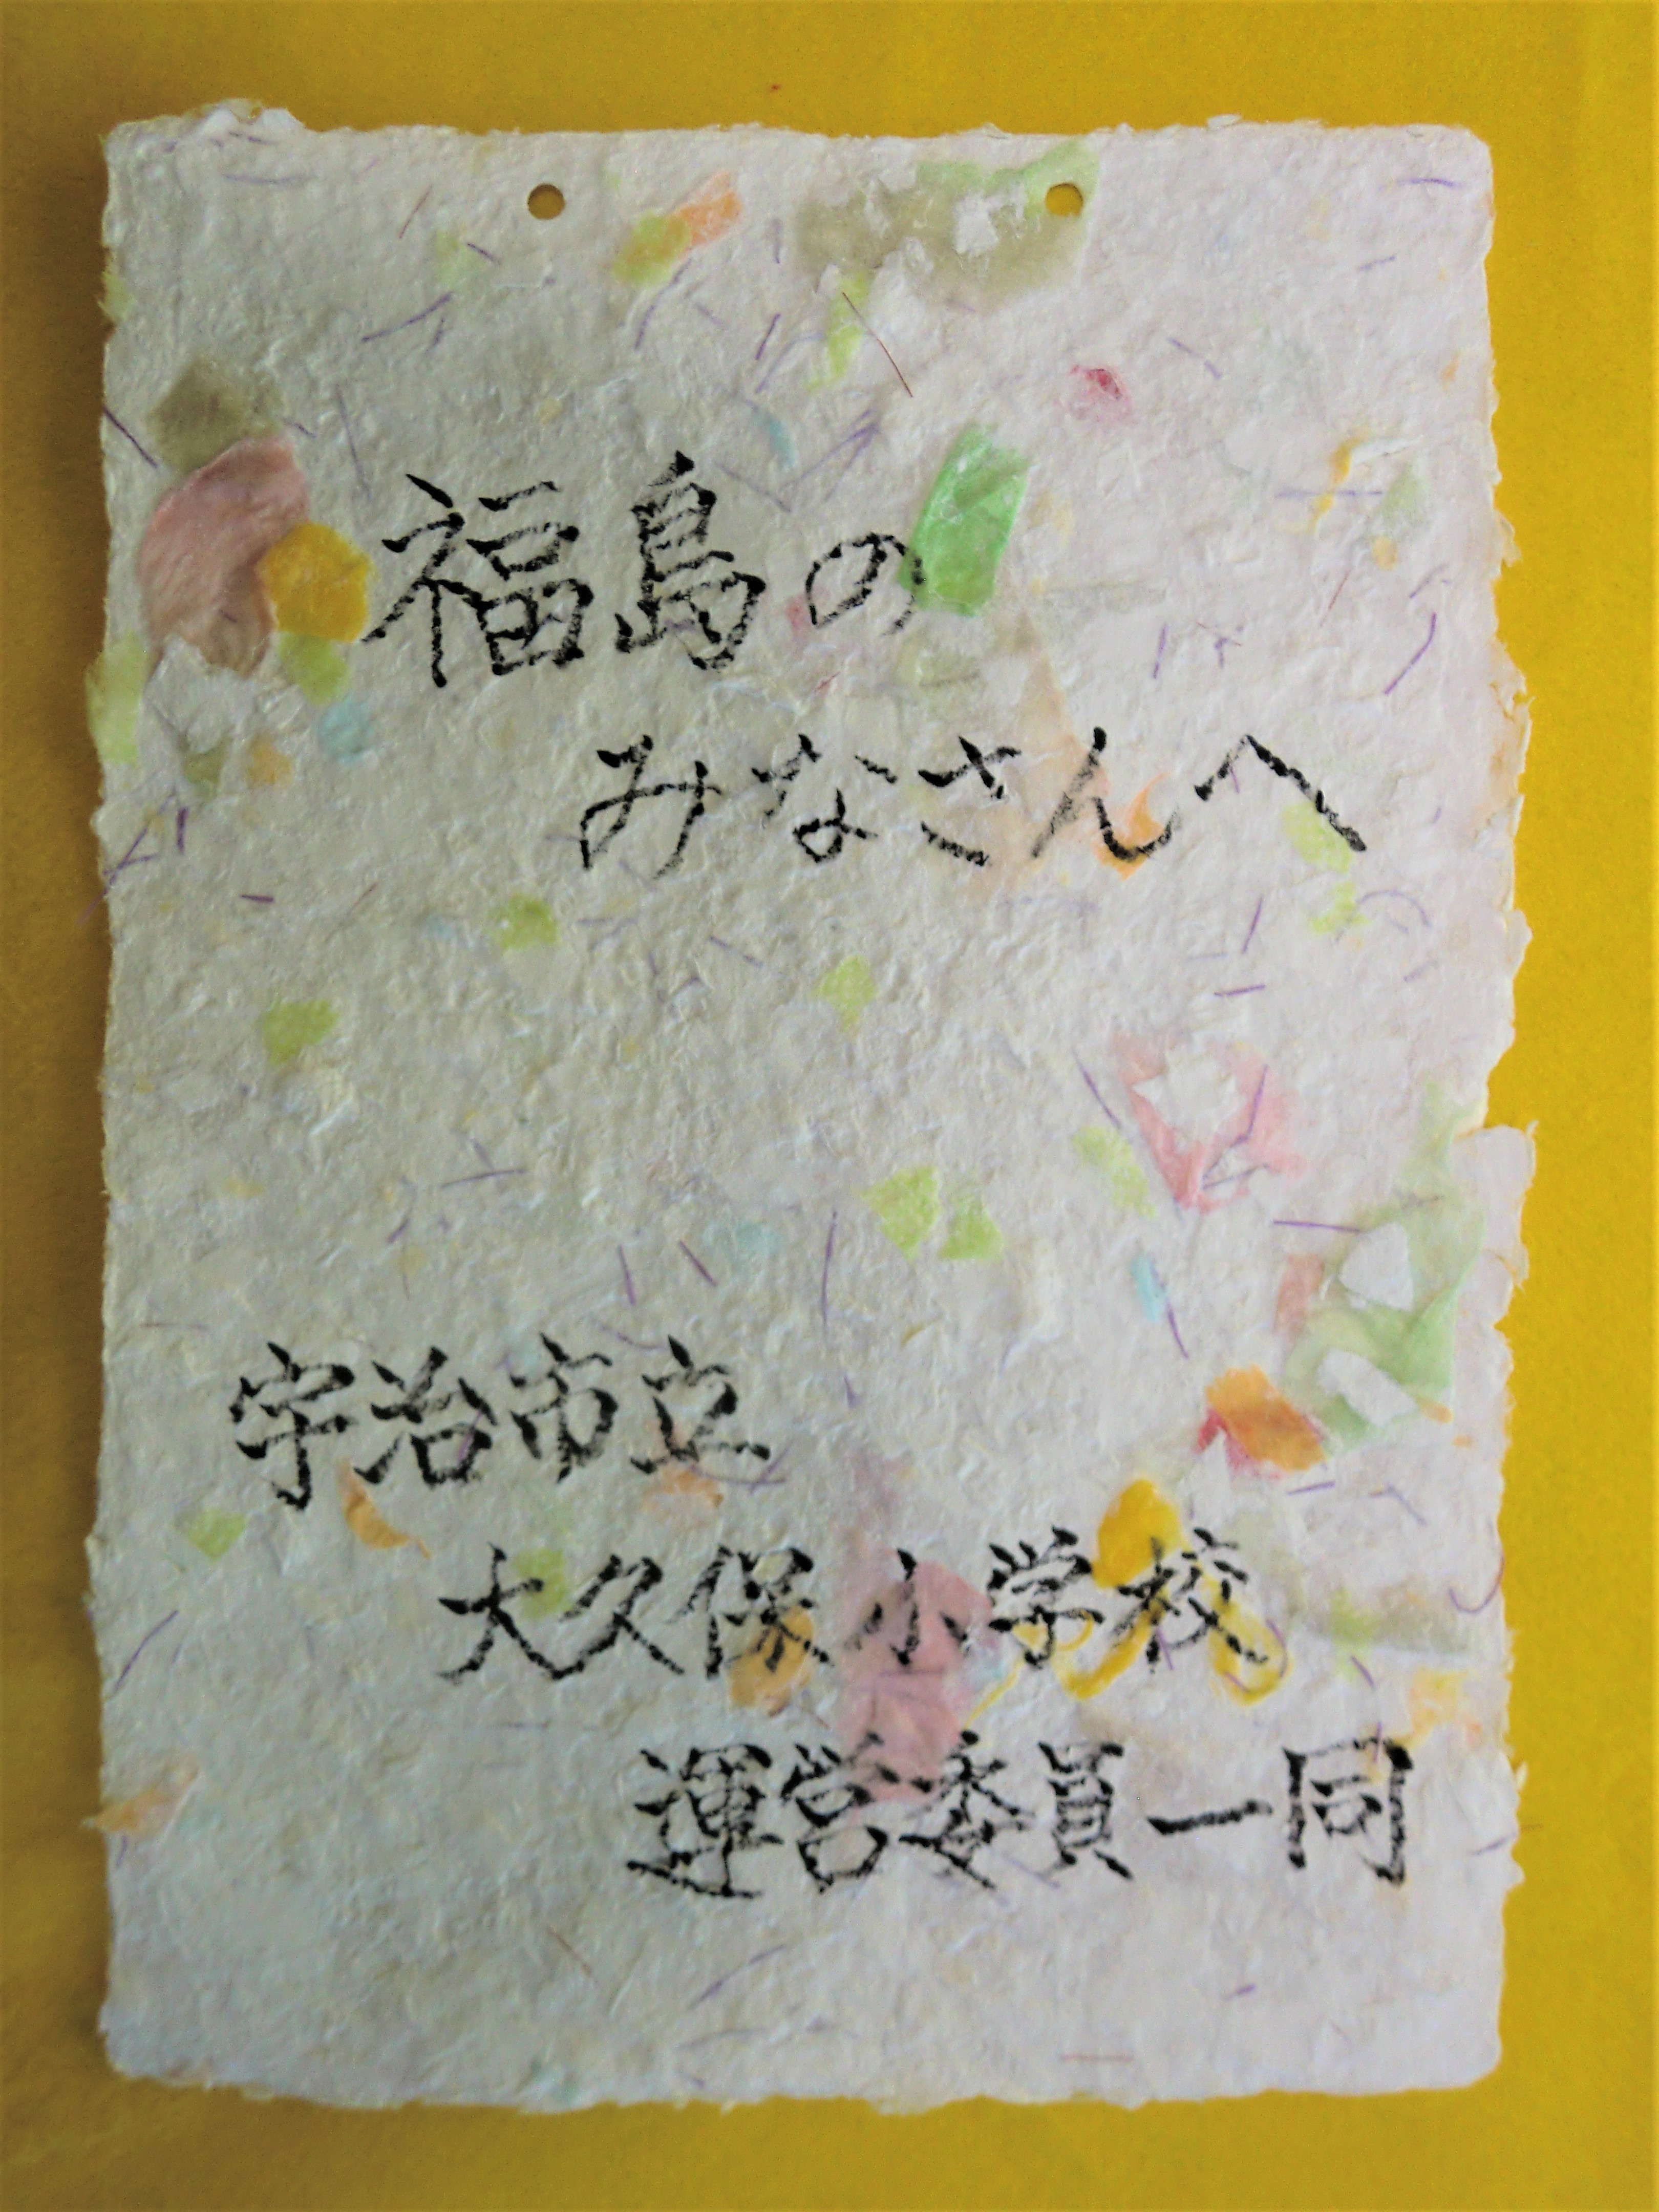 福島の
みなさんへ
宇治市立
大久保小学校
運営委員一同